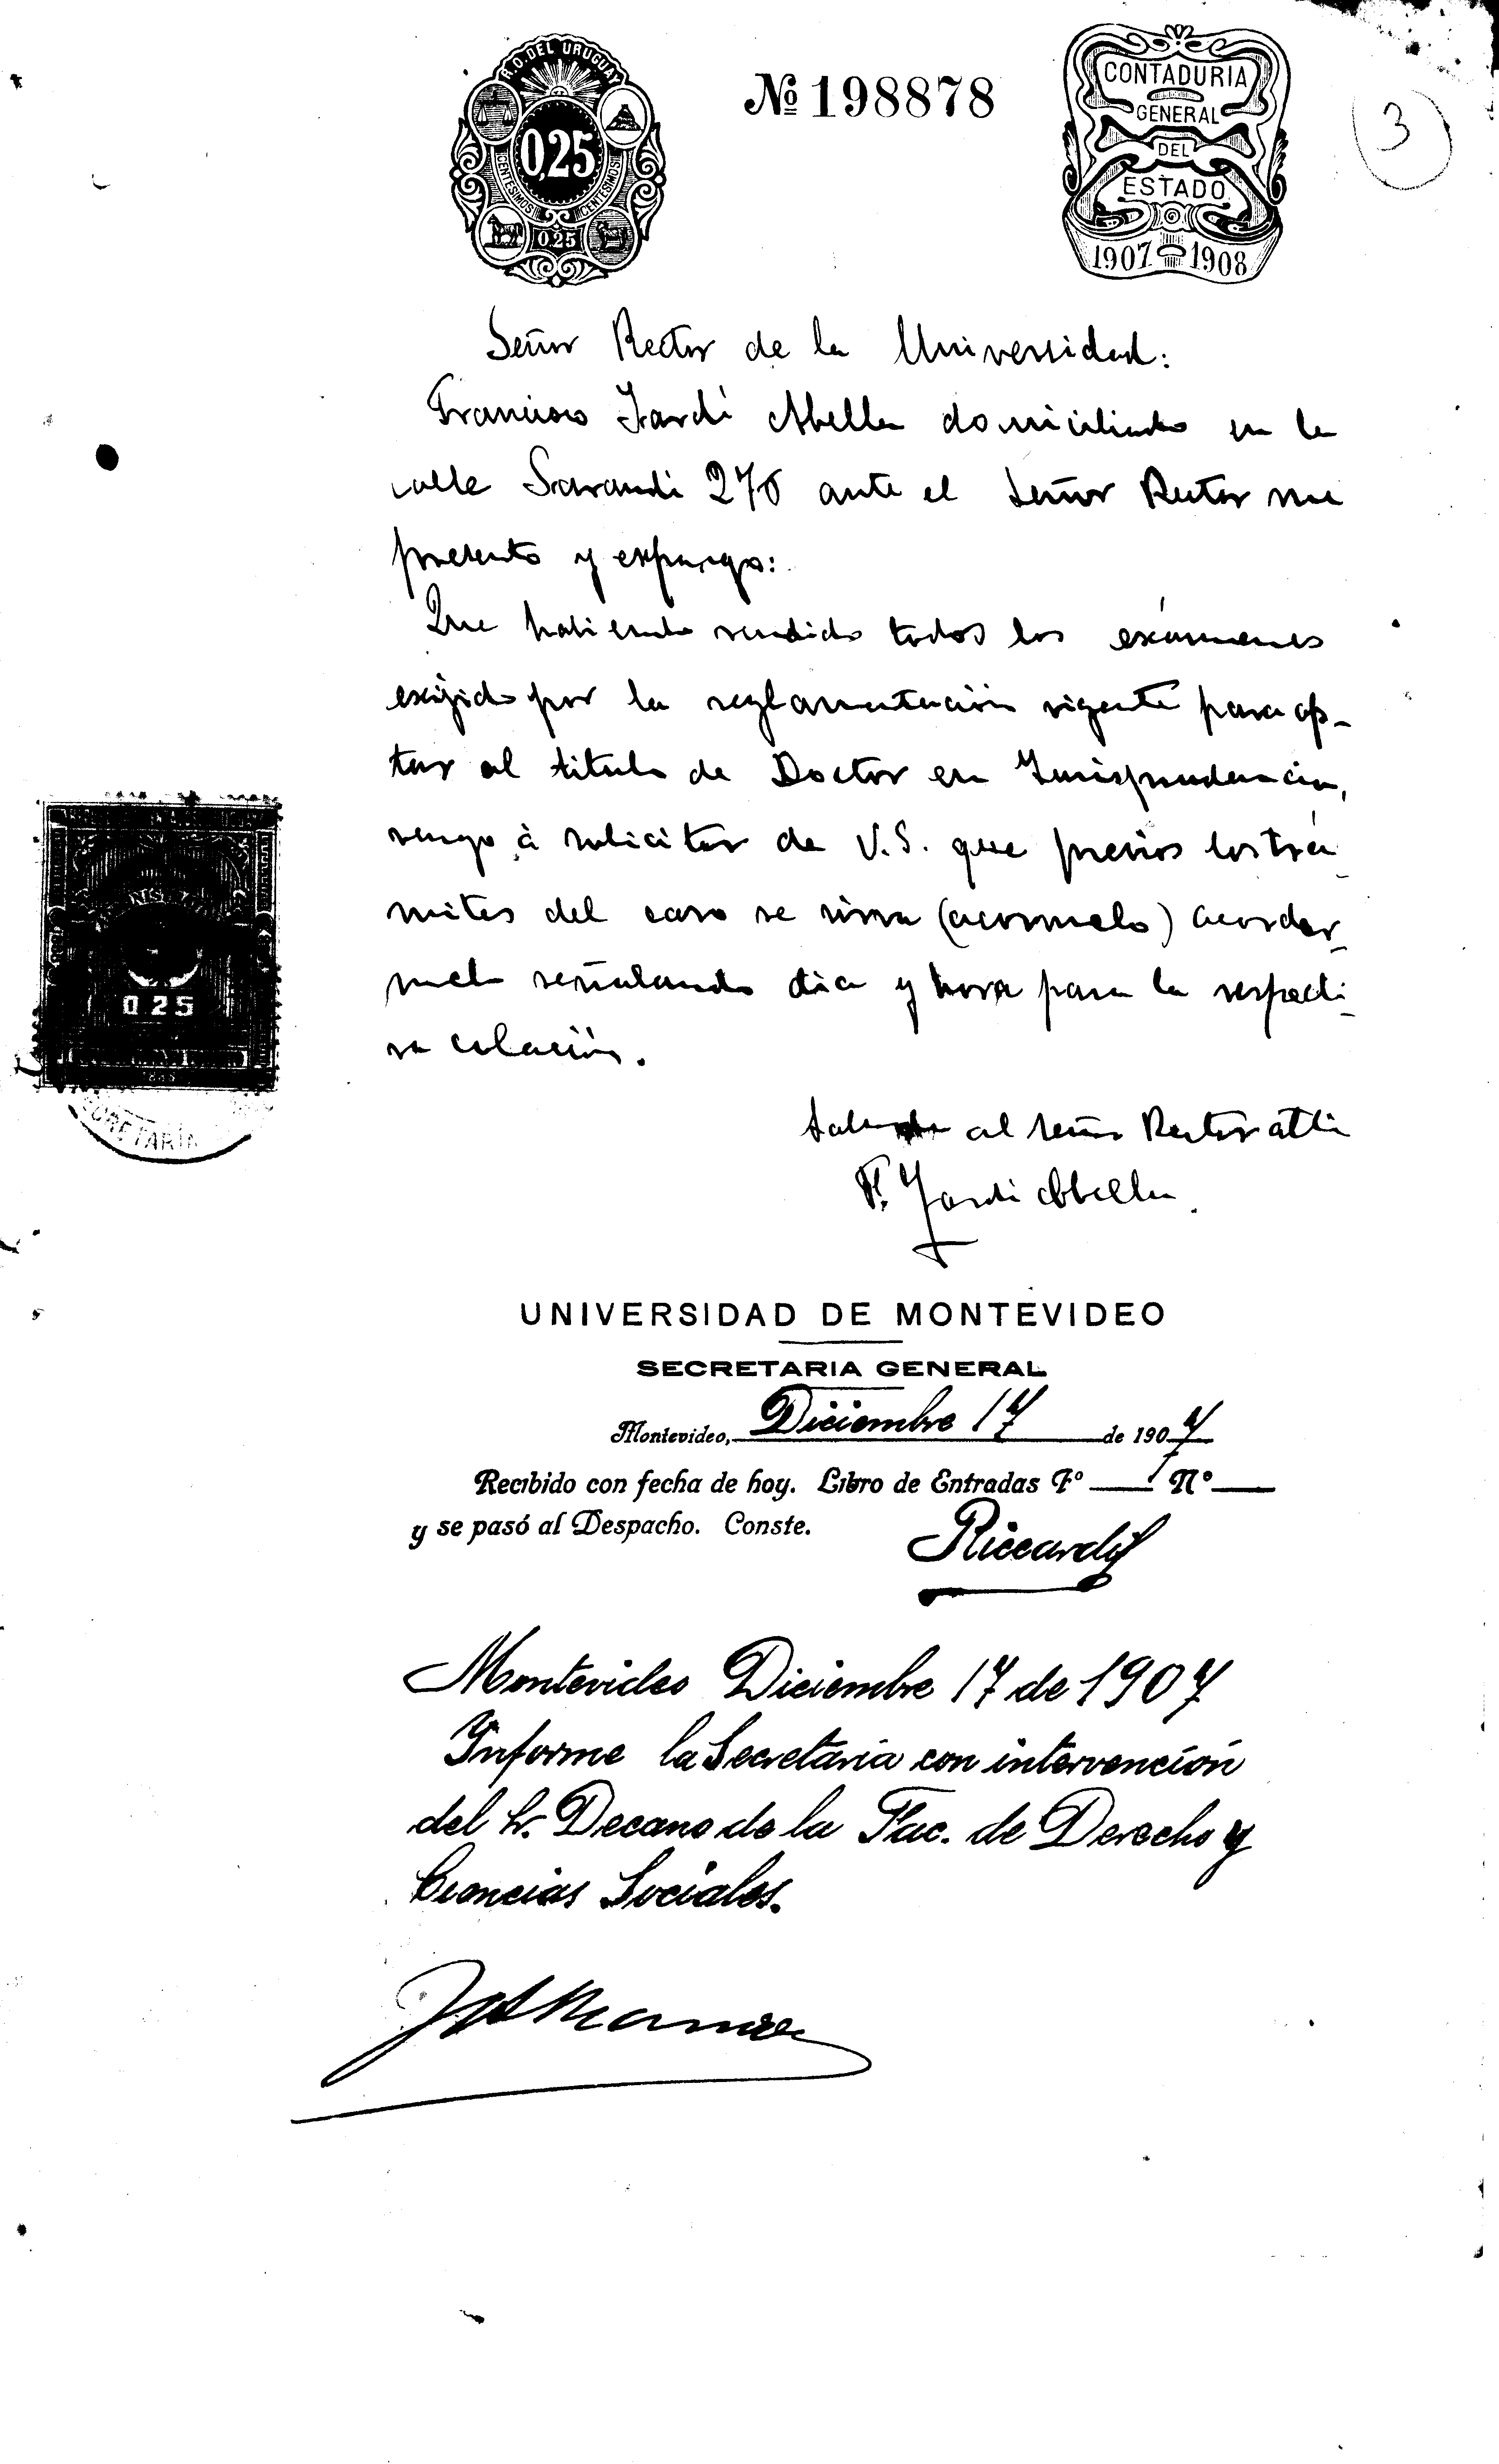 R.O. DEL URUGUAY
0,25
CENTESIMOS CENTESIMOS
0.25
Nº 198878
CONTADURIA
GENERAL
DEL
ESTADO
1907 1908
3
Señor Rector de la Universidad:
Francisco Jardí Abella domiciliado en la
calle Sarandí 276 ante el Señor Rector me
presento y expongo:
Que habiendo rendido todos los exámenes
exijido por la reglamentación vigente para op-
tar al titulo de Doctor en Jurisprudencia,
vengo á solicitar de V.S. que previos los trá-
mites del caso se sirva (acormelo) acordar-
melo señalando dia y hora para la respecti-
va colación.
0 25
SECRETARIA
Saludo al señor Rector atte
F. Jardí Abella
UNIVERSIDAD DE MONTEVIDEO
SECRETARIA GENERAL
Montevideo, Diciembre 17 de 1907
Recibido con fecha de hoy. Libro de Entradas Fº Nº
y se pasó al Despacho. Conste.
Riccardi
Montevideo Diciembre 17 de 1907
Informe la Secretaría con intervención
del Sr. Decano de la Fac. de Derecho y
Ciencias Sociales.